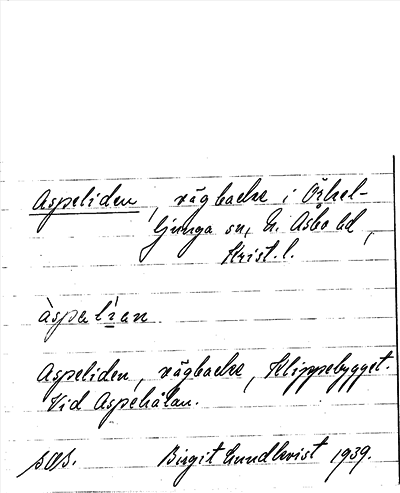 Aspeliden, vägbacke i Örkel-
ljunga sn, N. Åsbo hd,
Krist. l.
àspelían
Aspeliden, vägbacke, Klippebygget.
Vid Aspehålan.
Birgit Lundkvist 1939.